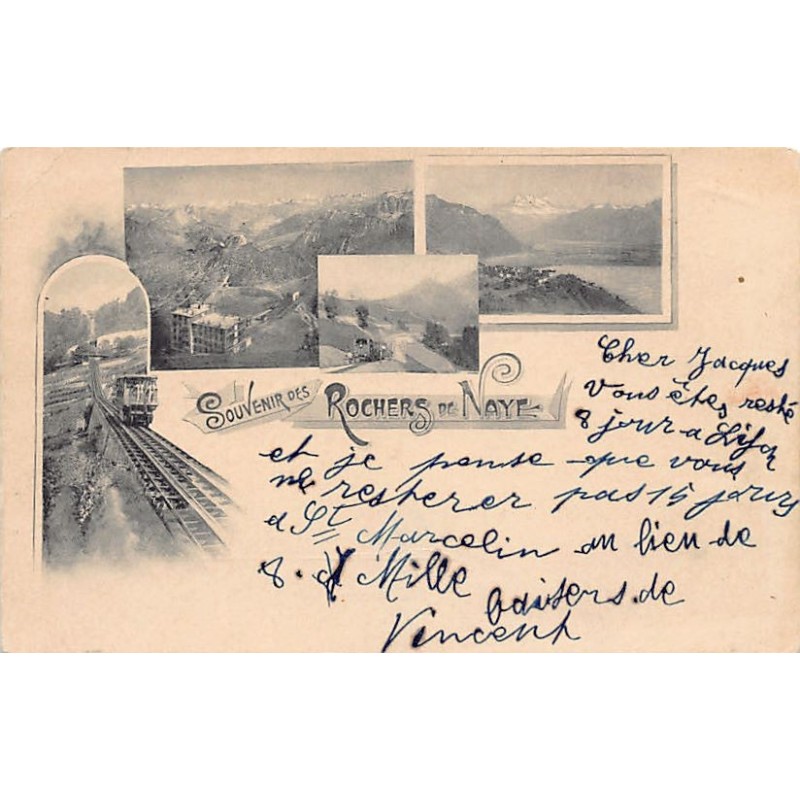 SOUVENIR DES ROCHERS DE NAYE
Cher Jacques
Vous êtes resté
8 jour a
et je pense que vous
ne resterer pas 15 jours
a St Marcelin au lieu de
8. Mille
baisers de
Vincent